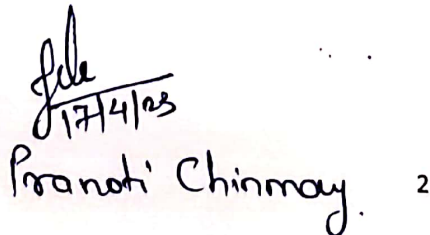 17/4/23
Pranoti Chinmay. 2